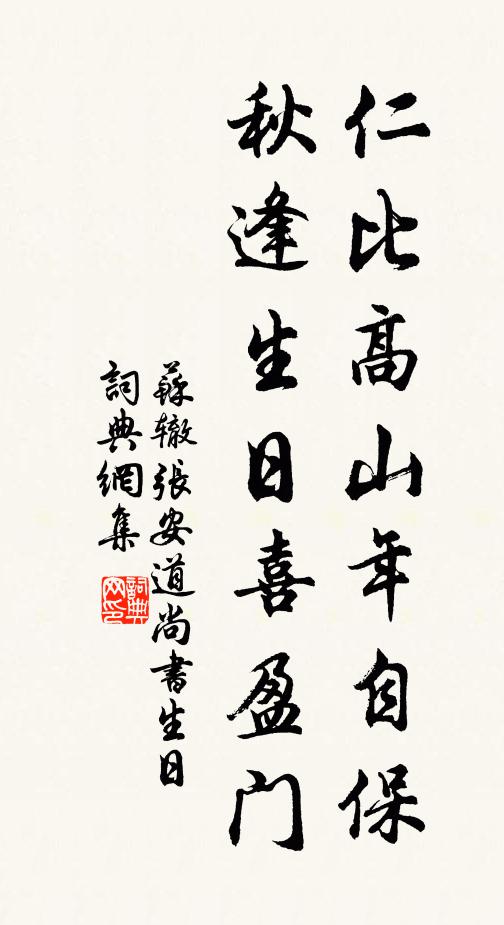 仁比高山年自保
秋逢生日喜盈门
蘇辙張安道尚書生日
詞典網集
詞典
网印